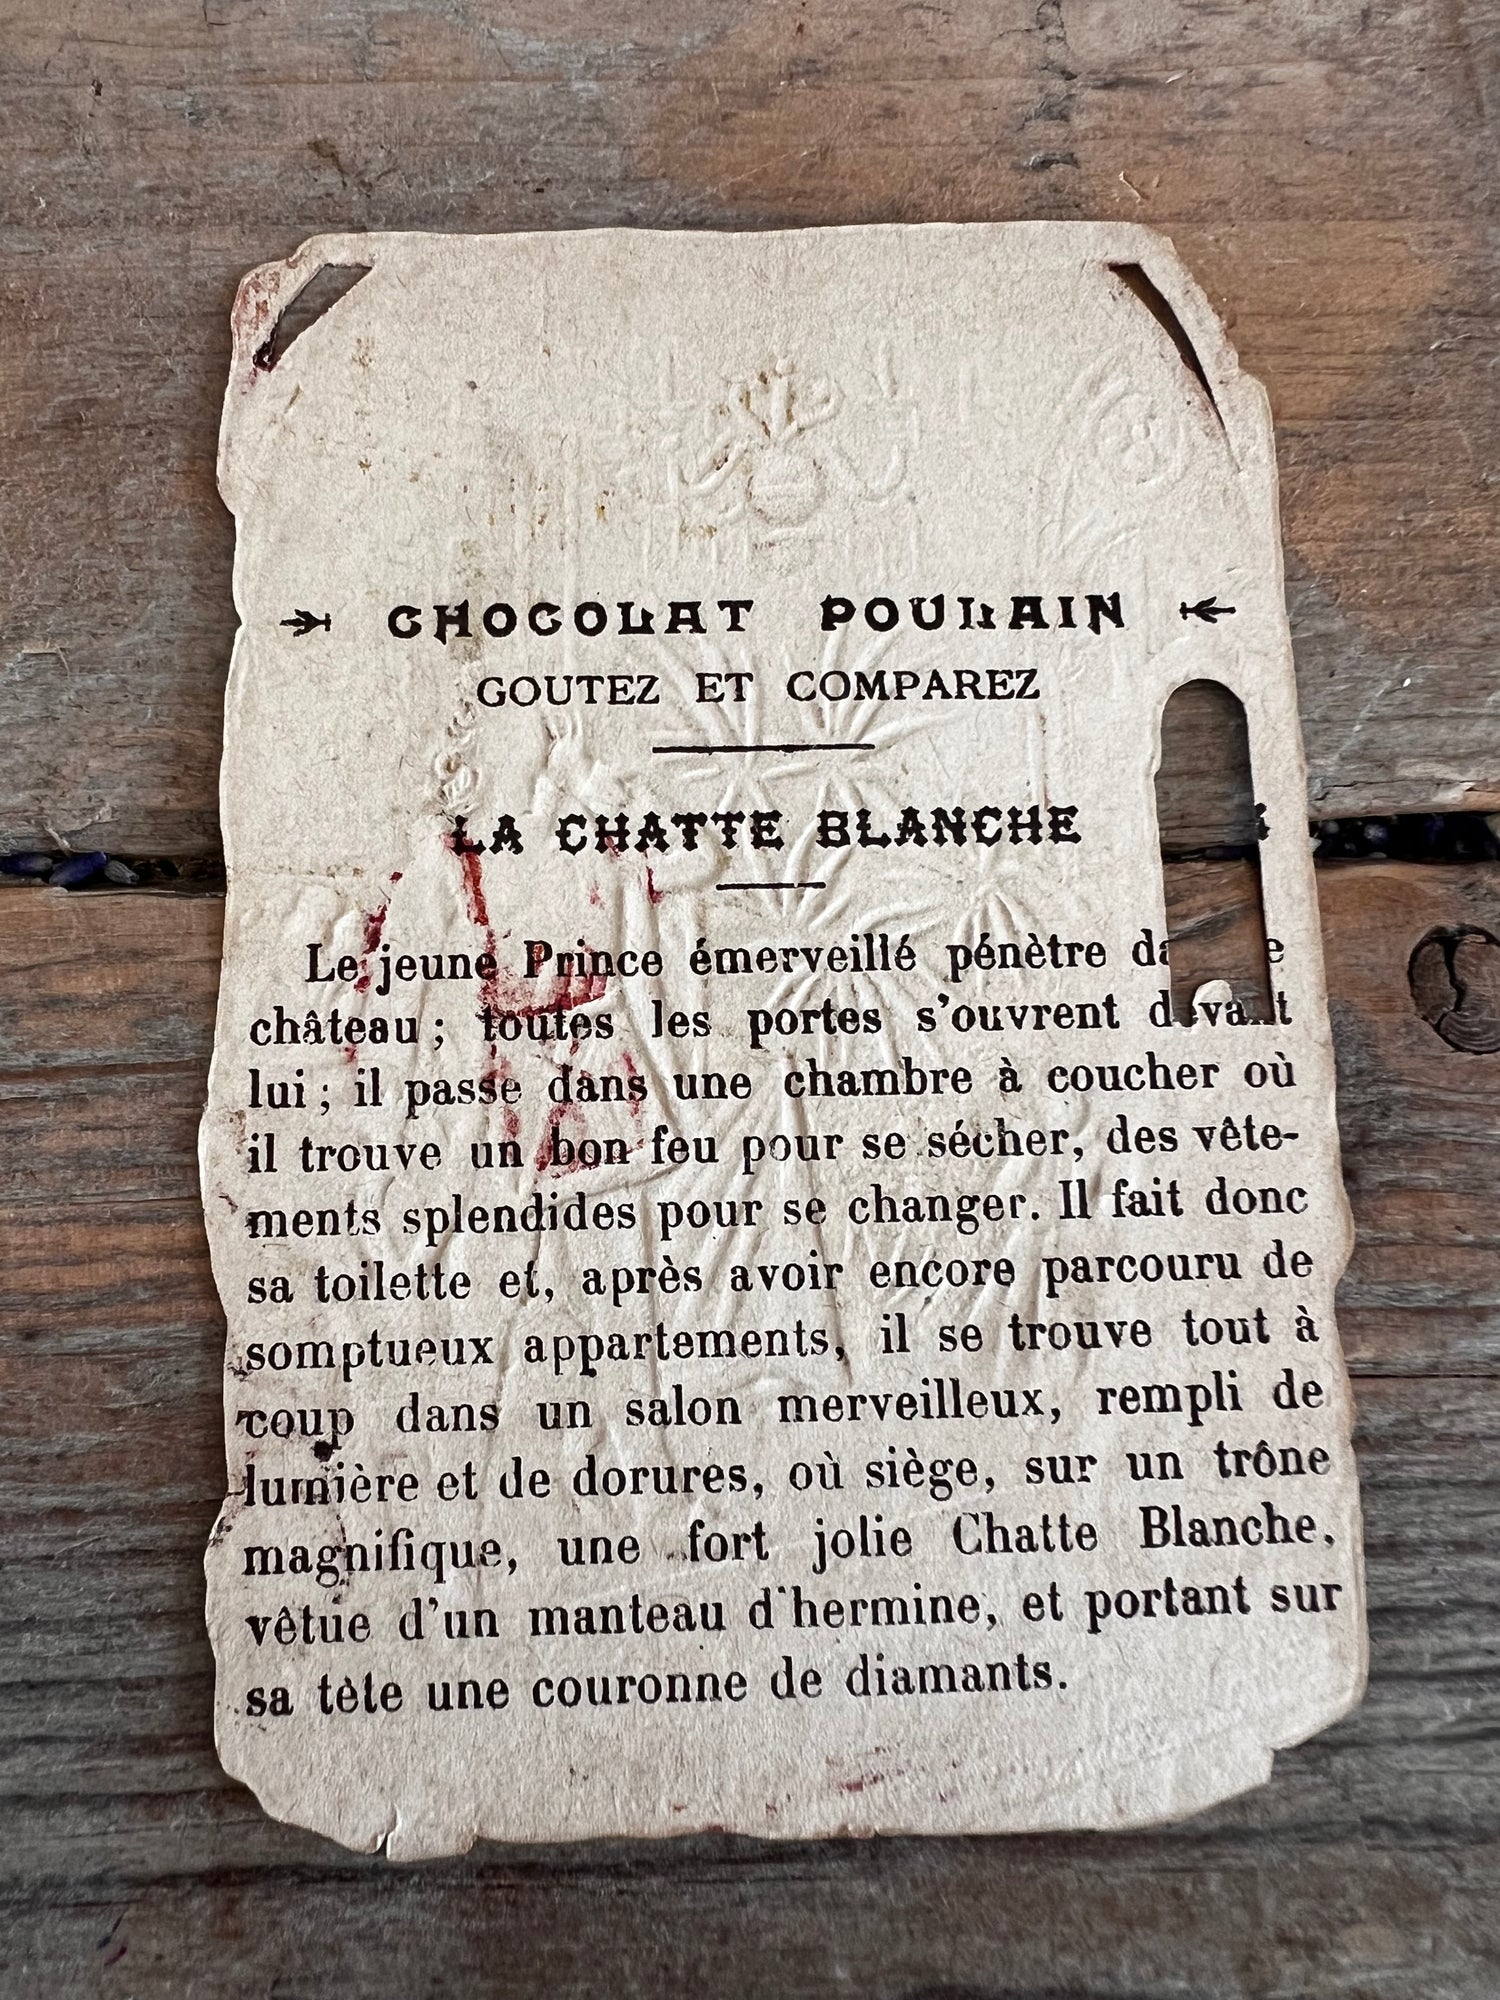 CHOCOLAT POULAIN
GOUTEZ ET COMPAREZ
LA CHATTE BLANCHE
Le jeune Prince émerveillé pénètre
château ; toutes les portes s'ouvrent devant
lui ; il passe dans une chambre à coucher où
il trouve un bon feu pour se sécher, des vête-
ments splendides pour se changer. Il fait donc
sa toilette et, après avoir encore parcouru de
somptueux appartements, il se trouve tout à
coup dans un salon merveilleux, rempli de
lumière et de dorures, où siège, sur un trône
magnifique, une fort jolie Chatte Blanche,
vêtue d'un manteau d'hermine, et portant sur
sa tête une couronne de diamants.